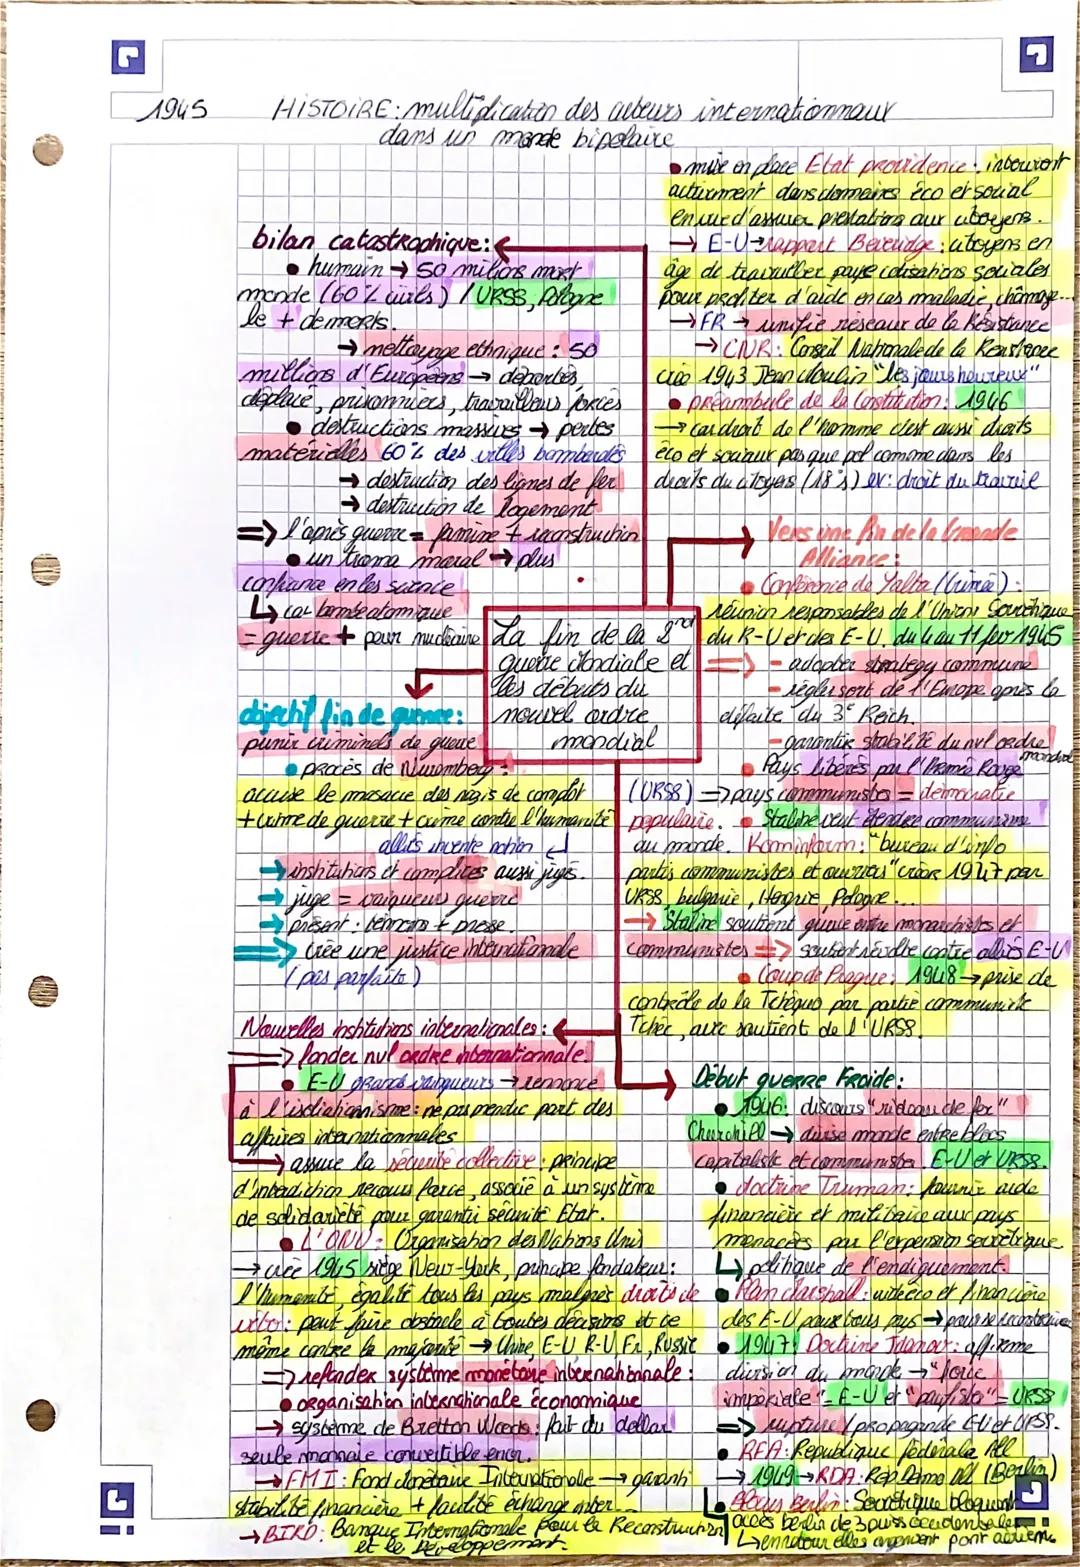 1945 HISTOIRE: multiplication des acteurs internationnaux
dans un monde bipolaire
bilan catastrophique:
• humain → 50 milions mort
monde (60% civils) / URSS, Pologne
le + de morts.
→ nettoyage ethnique: 50
millions d'Européens → déportés,
déplacé, prisonniers, travailleurs forcés
• destructions massives → pertes
matérielles 60% des villes bombardés
→ destruction des lignes de fer
→ destruction de logement
=> l'après guerre = famine + reconstruction
• un trauma moral → plus
confiance en les science
↳ car bombe atomique
= guerre + peur nucléaire
objectif fin de guerre:
punir criminels de guerre
• procès de Nuremberg:
accuse le massacre des nazis de complot
+ crime de guerre + crime contre l'humanité
alliés invente notion
→ institutions et complices aussi jugés.
→ juge = vainqueurs guerre
→ présent: témoins + presse.
=> crée une justice internationale
(pas parfaite)
Nouvelles institutions internationales:
=> fonder nvl ordre internationnale
• E-U grands vainqueurs → renonce
à l'isolationnisme: ne pas prendre part des
affaires internationnales
→ assure la sécurité collective: principe
d'interdiction recours force, associé à un système
de solidariété pour garantir sécurité Etat.
• L'ONU: Organisation des Nations Unis
→ crée 1945 siège New-York, principe fondateur:
l'humanité, égalité tous les pays malgrès droits de
véto: peut faire obstacle à toutes décisions et ce
même contre la majorité → Chine E-U R-U Fr, Russie
=> refonder système monétaire internationale:
• organisation internationale économique
→ système de Bretton Woods: fait du dollar
seule monnaie convertible en or.
→ FMI: Fond Monétaire Internationale → garanti
stabilité financière + facilité échange inter...
→ BIRD: Banque Internationale pour la Reconstruction
et le Développement.
• mise en place Etat providence: intervient
activement dans domaines éco et social
en vue d'assurer prestations aux citoyens.
→ E-U → rapport Beveridge: citoyens en
âge de travailler paye cotisations sociales
pour profiter d'aide en cas maladie, chômage...
→ FR → unifie réseaux de la Résistance
→ CNR: Conseil Nationale de la Résistance
créé 1943 Jean Moulin "les jours heureux"
• préambule de la Constitution: 1946
→ car droit de l'homme c'est aussi droits
éco et sociaux pas que pol comme dans les
droits du citoyens (18°s) ex: droit du travail
Vers une fin de la Grande
Alliance:
• Conférence de Yalta (Crimée):
réunion responsables de l'Union Soviétique
du R-U et des E-U. du 4 au 11 fev 1945
=> - adopter strategy commune
- régler sort de l'Europe après la
défaite du 3e Reich.
- garantir stabilité du nvl ordre
mondial
• Pays libérés par l'Armée Rouge
(URSS) => pays communistes = démocratie
populaire. • Staline veut étendre communisme
au monde. Kominform: "bureau d'info
partis communistes et ouvriers" créer 1947 par
URSS, bulgarie, Hongrie, Pologne...
→ Staline soutient guerre entre monarchistes et
communistes => soutient révolte contre alliés E-U
• Coup de Prague: 1948 → prise de
contrôle de la Tchéquo par partie communiste
Tchéc, avec soutient de l'URSS.
La fin de la 2nd
guerre Mondiale et
les débuts du
nouvel ordre
mondial
Début guerre Froide:
• 1946: discours "rideau de fer"
Churchill → divise monde entre blocs
capitaliste et communiste. E-U et URSS.
• doctrine Truman: fournir aide
financière et militaire aux pays
menacées par l'expension soviétique
↳ politique de l'endiguement.
• Plan Marshall: aide éco et financière
des E-U pour tous pays → pour se reconstruire
• 1947: Doctrine Jdanov: affirme
division du monde → "force
impériale" = E-U et "pacifiste" = URSS
=> rupture / propagande E-U et URSS.
• RFA: République fédérale All
→ 1949 → RDA: Rép Démo All (Berlin)
↳ Blocus Berlin: Soviétique bloquent
accès berlin de 3 puiss occidentales
↳ en retour elles organisent pont aérienne